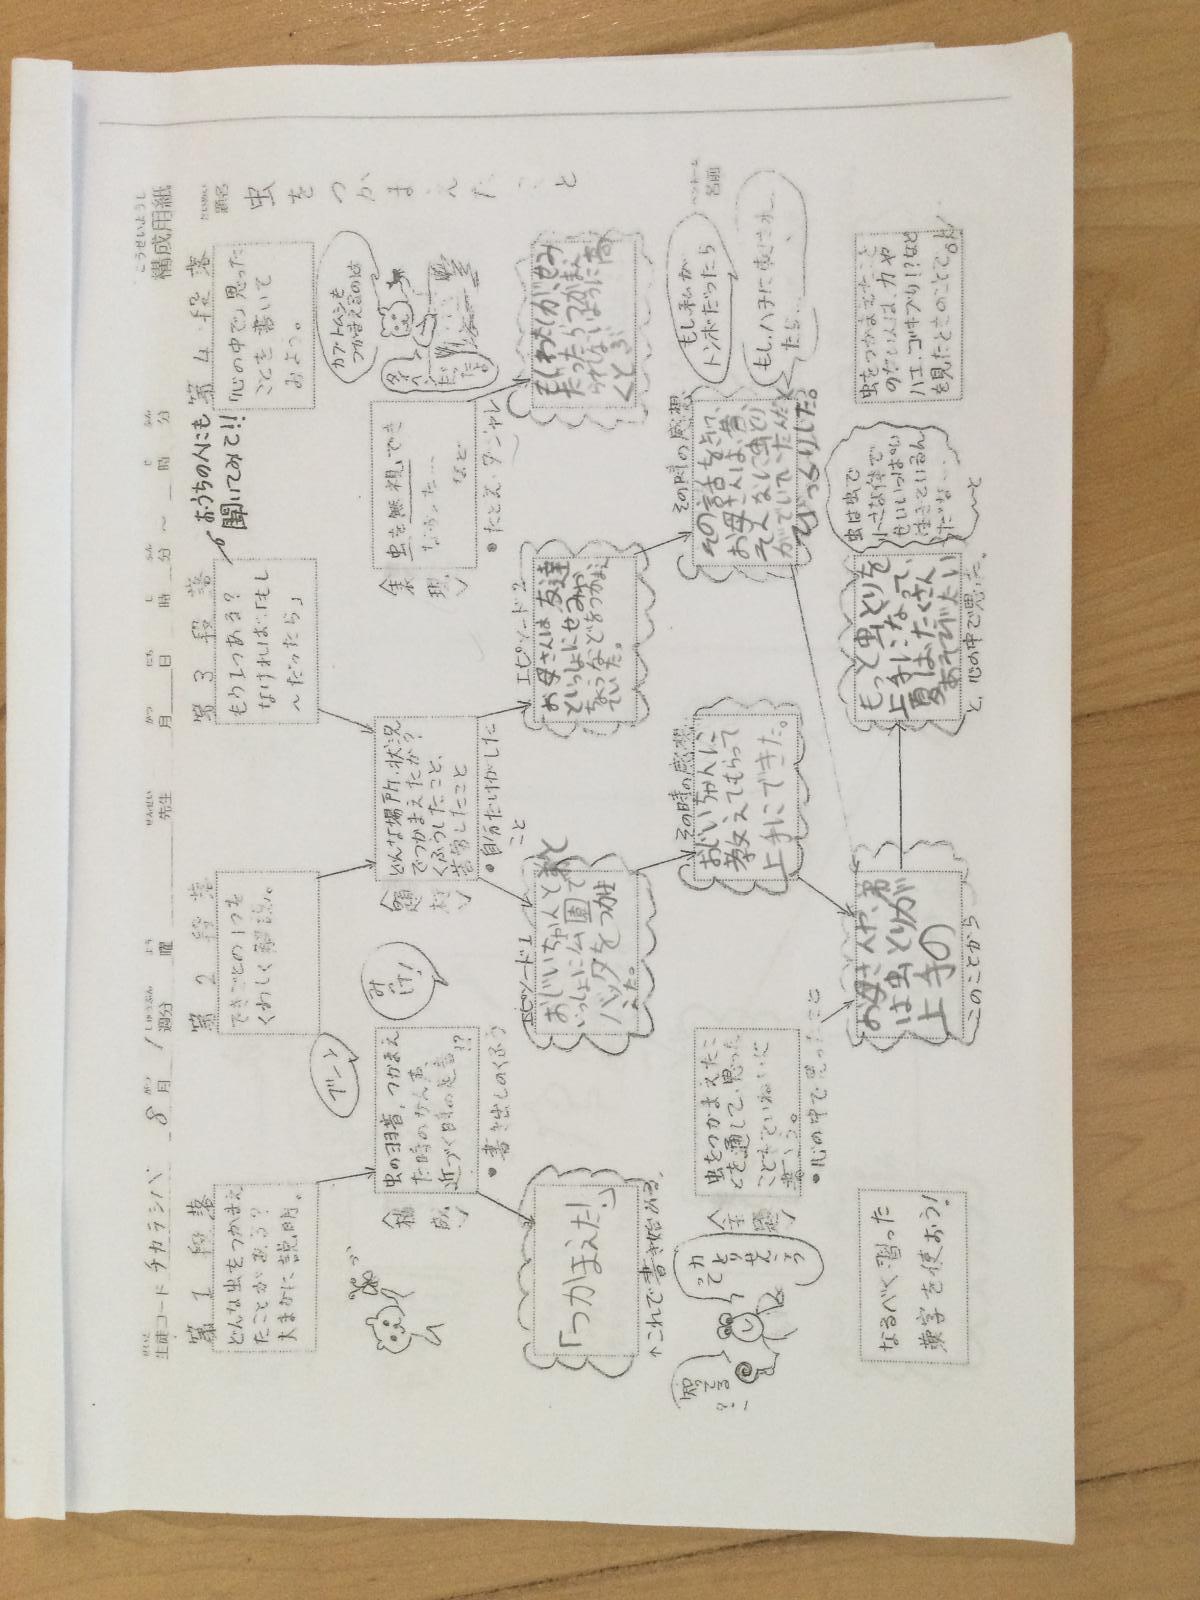 こうせいようし
構成用紙
だいめい
題名
虫をつかまえたこと
ペンネーム
名前
生徒コード チカラシバ 8月 1週分 曜 先生 月 日 時 分 ～ 時 分
第1段落
どんな虫をつかまえ
たことがある?
大まかに説明。
第2段落
できごとの1つを
くわしく解説。
第3段落
もう1つある?
なければ、「もし
～だったら」
おうちの人にも
聞いてみて!!
第4段落
「心の中で」思った
ことを書いて
みよう。
ブーン
虫の羽音、つかまえ
た時のかん声、
近づく自分の足音!?
・書き出しのくふう
〈題材〉
どんな場所・状況
でつかまえたか?
くふうしたこと、
苦労したこと
・自分だけがした
こと
〈表現〉
虫を無視でき
なかった…
など
・たとえ・ダジャレ
カブトムシを
つかまえるのは
「つかまえた!」
↑これで書き始める。
エピソード1
おじいちゃんと
いっしょに公園で
バッタをつかま
えた。
エピソード2
お母さんは友達
といっしょにせみや
ちょうなどをつかまえ
ていた。
もしわたしが、せみ
だったらつかまえ
られないように高
くとぶ
知ってる?
カってとりせんこう
〈主題〉
虫をつかまえたこ
とを通して、思った
ことをていねいに
書こう。
・心の中で思ったこと
その時の感想
おじいちゃんに
教えてもらって
上手にできた。
その時の感想
その話を聞いて、
お母さんは、昔、
そんなに虫とり
がていていたんだと
びっくりした。
もし私が
トンボだったら
もし、ハチに
たら…
なるべく習った
漢字を使おう!
お母さんや、弟
は虫とりが
上手の
このことから
もっと虫とりを
上手になって、
夏はたくさん
あそびたい
と、心の中で思った。
虫は虫で
小さな体で
せいいっぱい
生きているん
だな…
～と
虫をつかまえたこと
のない人は、カや
ハエ、ゴキブリ!?など
を見たときのことでOK